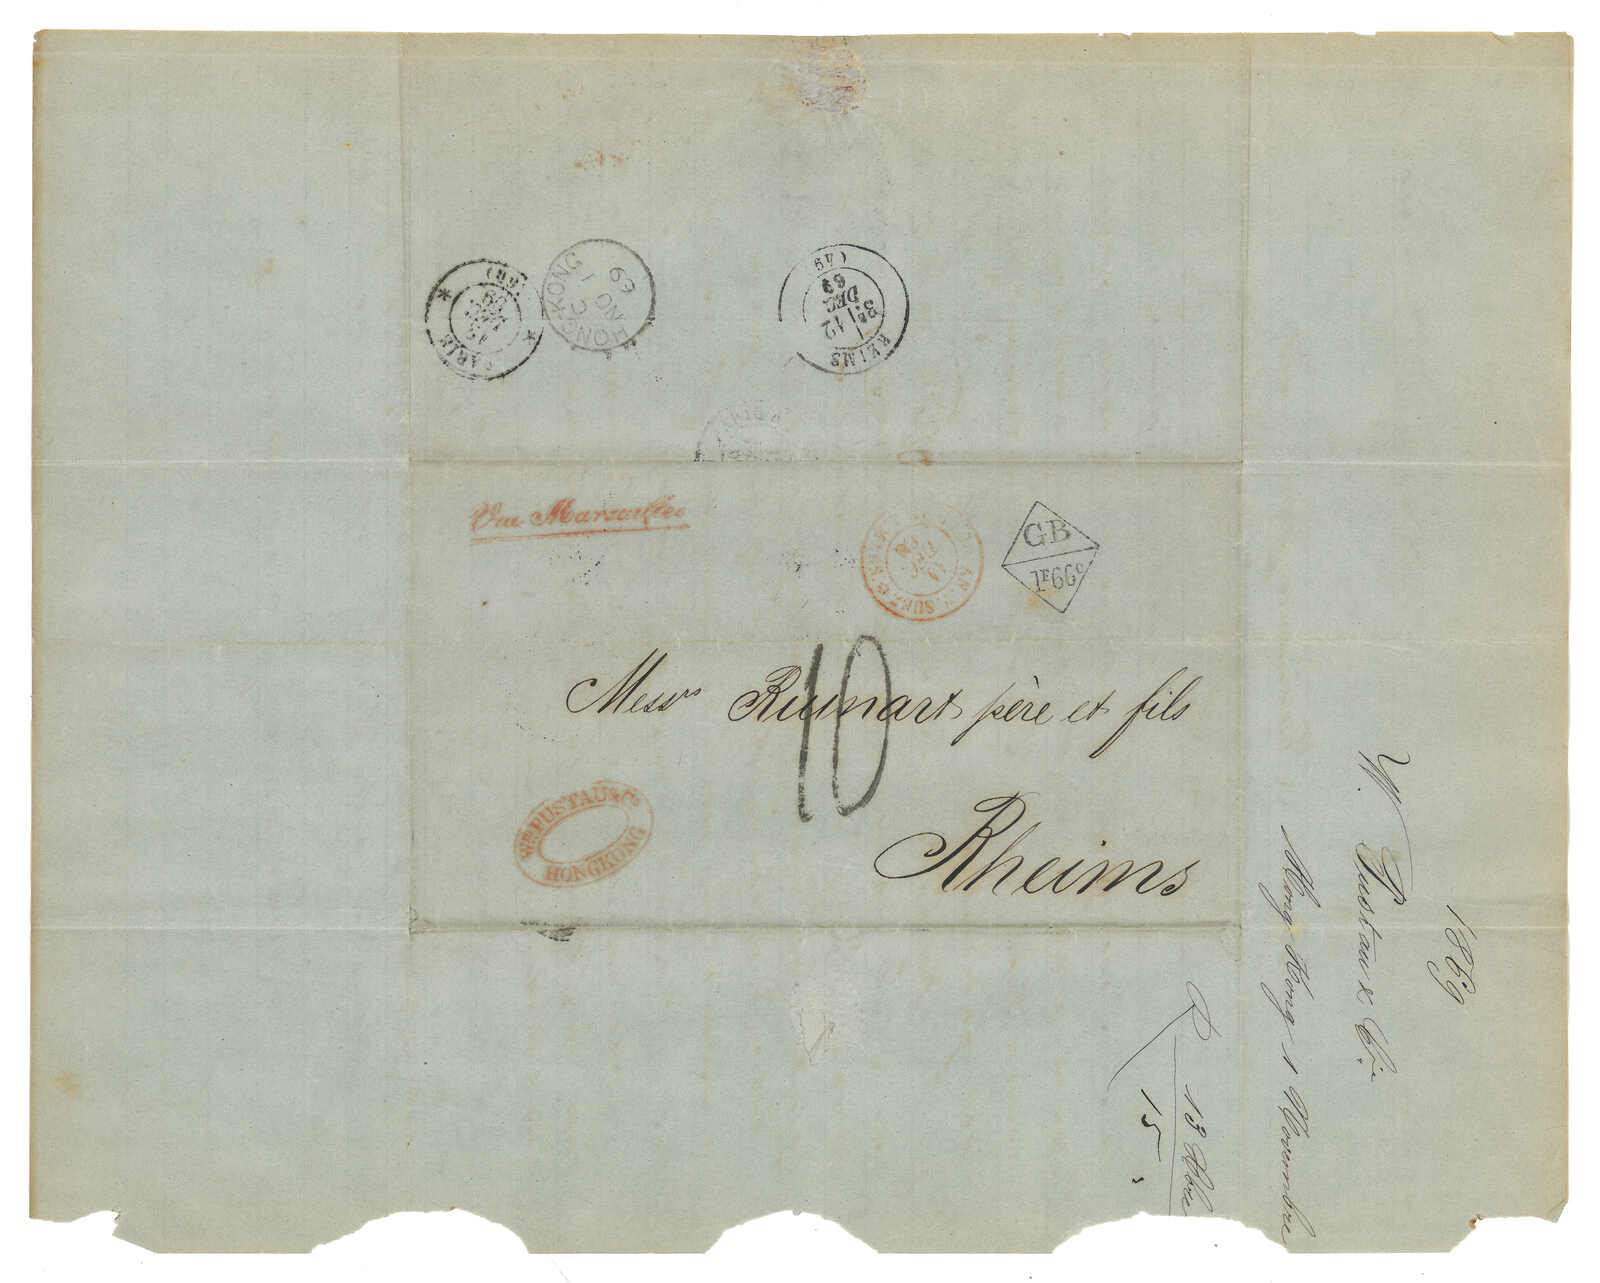 (49)
REIMS
3E
12
DEC
69
HONG-KONG
C
NO 1
69
PARIS
12
DEC
69
Via Marseilles
GB
1F66c
SUEZ
Messrs Ruinart père et fils
10
Rheims
Wm PUSTAU & Co
HONGKONG
1869
W. Pustau & Cie
Hong Kong 1 Novembre
R 13 Xbre
15